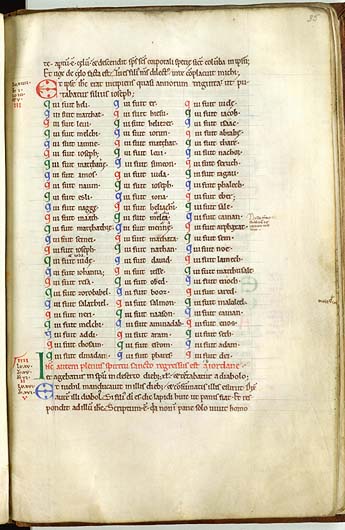 85
te apti & celu et descendit sps scs corporali specie sicut columba in ipsu
Et vox de celo facta est. Tu es filius ms dilectus in te complacuit michi
Et ipse ihc erat incipiens quasi annorum triginta ut pu
tabatur filius ioseph
qui fuit heli
qui fuit mathat
qui fuit levi
qui fuit melchi
qui fuit iamne
qui fuit ioseph
qui fuit mathathie
qui fuit amos
qui fuit naum
qui fuit esli
qui fuit nagge
qui fuit maath
qui fuit mathathie
qui fuit semei
qui fuit ioseph
qui fuit iude
qui fuit iohanna
qui fuit resa
qui fuit zorobabel
qui fuit salathiel
qui fuit neri
qui fuit melchi
qui fuit addi
qui fuit chosam
qui fuit elmadam
qui fuit er
qui fuit hiesu
qui fuit heliezer
qui fuit iorim
qui fuit matthat
qui fuit levi
qui fuit simeon
qui fuit iuda
qui fuit ioseph
qui fuit iona
qui fuit heliachi
qui fuit melea
qui fuit menne
qui fuit mathata
qui fuit nathan
qui fuit david
qui fuit iesse
qui fuit obed
qui fuit booz
qui fuit salmon
qui fuit naason
qui fuit aminadab
qui fuit aram
qui fuit esrom
qui fuit phares
qui fuit iude
qui fuit iacob
qui fuit isaac
qui fuit abrahe
qui fuit thare
qui fuit nachor
qui fuit seruch
qui fuit ragau
qui fuit phalech
qui fuit eber
qui fuit sale
qui fuit cainan
qui fuit arphaxat
qui fuit sem
qui fuit noe
qui fuit lamech
qui fuit mathusale
qui fuit enoch
qui fuit iared
qui fuit malaleel
qui fuit cainan
qui fuit enos
qui fuit seth
qui fuit adam
qui fuit dei
Ihc autem plenus spiritu sancto regressus est a iordane
et agebatur in spu in deserto dieb xl et temptabatur a diabolo
Et nichil manducavit in illis dieb et consumatis illis esuriit Dix
autem illi diabol Si fili di es dic lapidi huic ut panis fiat Et res
pondit ad illu ihc Scriptum e qa non i pane solo vivit homo